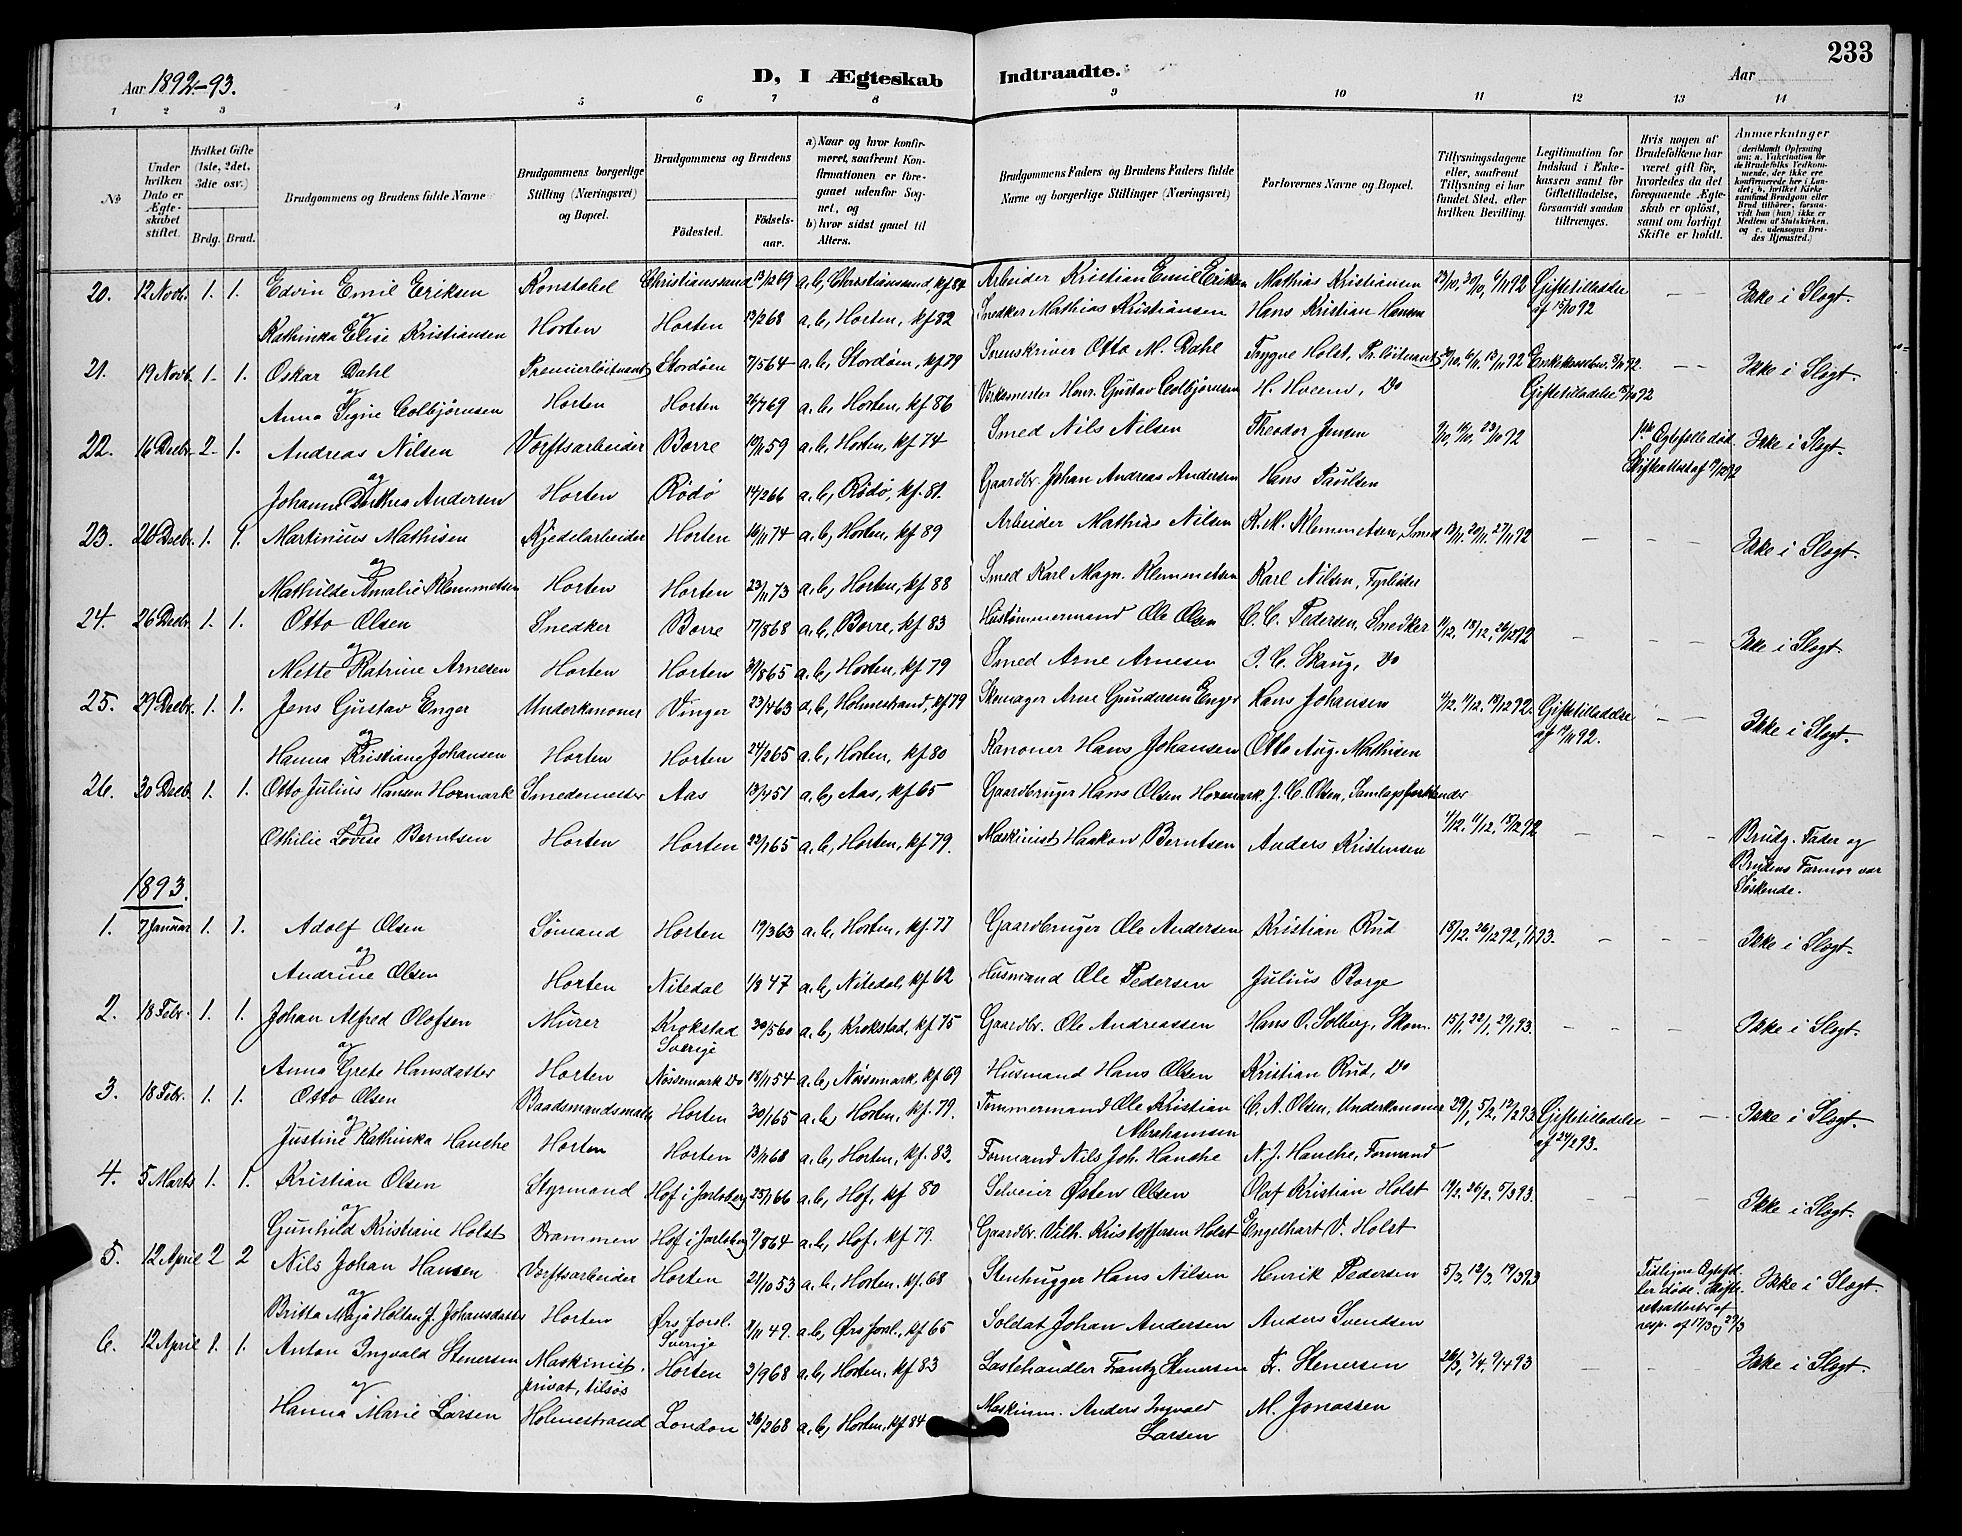 233
Aar 1892-93.
D, I Ægteskab Indtraadte.
Aar
1 2 3 4 5 6 7 8 9 10 11 12 13 14
№
Under hvilken Dato er Ægteskabet stiftet.
Hvilket Gifte (1ste, 2det, 3die osv.)
Brdg. Brud.
Brudgommens og Brudens fulde Navne
Brudgommens borgerlige Stilling (Næringsvei) og Bopæl.
Brudgommens og Brudens
Fødested.
Fødselsaar.
a) Naar og hvor konfirmeret, saafremt Konfirmationen er foregaaet udenfor Sognet, og
b) hvor sidst gaaet til Alters.
Brudgommens Faders og Brudens Faders fulde Navne og borgerlige Stillinger (Næringsvei)
Forlovernes Navne og Bopæl.
Tillysningsdagene eller, saafremt Tillysning ei har fundet Sted, efter hvilken Bevilling.
Legitimation for Indskud i Enkekassen samt for Giftetilladelse, forsaavidt saadan tiltrænges.
Hvis nogen af Brudefolkene har været gift før, hvorledes da det foregaaende Ægteskab er opløst, samt om lovligt Skifte er holdt.
Anmærkninger (deriblandt Oplysning om: a. Vakcination for de Brudefolks Vedkommende, der ikke ere konfirmerede her i Landet; b. hvilket Kirkesamfund Brudgom eller Brud tilhører, forsaavidt han (hun) ikke er Medlem af Statskirken, og c. udensogns Brudes Hjemsted.)
20. 12 Novb. 1. 1. Edvin Emil Eriksen Konstabel Christianssand 13/12 69 a.b, Christianssand, kf 84 Arbeider Kristian Emil Eriksen Mathias Kristiansen 23/10, 30/10, 6/11 92 Giftetilladelse af 15/10 92 — — Ikke i Slegt.
og
Kathinka Elise Kristiansen Horten Horten 13/2 68 a.b, Horten, kf 82 Snedker Mathias Kristiansen Hans Kristian Hansen
21. 19 Novb. 1. 1. Oskar Dahl Premierløitnant Stordøen 7/5 64 a.b, Stordøen, kf 79 Sorenskriver Otto M. Dahl Trygve Holst, Pr. løitnant 30/10, 6/11, 13/11 92 — — Ikke i Slegt.
og
Anna Signe Colbjørnsen Horten Horten 26/7 69 a.b, Horten, kf 86 Værksmester Hans Gustav Colbjørnsen H. Hveem, Do Giftetilladelse
22. 16 Decbr. 2. 1. Andreas Nilsen Værftsarbeider Borre 19/11 59 a.b, Horten, kf 74 Smed Nils Nilsen Theodor Jensen 9/10, 16/10, 23/10 92 Ikke i Slegt.
og
Johanne Dorthea Andersen Horten Rødø 14/2 66 a.b, Rødø, kf. 81. Gaardbr. Johan Andreas Andersen Hans Paulsen
23. 26 Decbr. 1. 1. Martinius Mathisen Kjedelarbeider Horten 16/11 74 a.b, Horten, kf 89 Arbeider Mathias Nilsen K. M. Klemmetsen, Smed 13/11. 20/11. 27/11 92 — — — Ikke i Slegt.
og
Mathilde Amalie Klemmetsen Horten Horten 23/11 73 a.b, Horten, kf 88 Smed Karl Magn. Klemmetsen Karl Nilsen, Fyrbøder
24. 26 Decbr. 1. 1. Otto Olsen Snedker Borre 17/8 68 a.b, Borre, kf 83 Hustømmermand Ole Olsen C. C. Pedersen, Snedker 11/12, 18/12, 26/12 92 — — — Ikke i Slegt.
og
Mette Katrine Arnesen Horten Horten 31/8 65 a.b, Horten, kf 79 Smed Arne Arnesen J. C. Skaug, Do
25. 29 Decbr. 1. 1. Jens Gustav Enger Underkanoner Vinger 23/4 63 a.b, Holmestrand, kf 79 Skomager Arne Gundersen Enger Hans Johansen 4/12. 11/12. 18/12 92. Giftetilladelse af 17/11 92. — — Ikke i Slegt.
og
Hanna Kristiane Johansen Horten Horten 24/2 65 a.b, Horten, kf 80 Kanoner Hans Johansen Otto Aug. Mathisen
26. 30 Decb. 1. 1. Otto Julius Hansen Hormark Smedemester Aas 13/4 51 a.b, Aas, kf 65 Gaardbruger Hans Olsen Hormark J. C. Olsen,
og
Othilie Lovise Berntsen Horten Horten 22/1 65 a.b, Horten, kf 79. Maskinist Haakon Berntsen Anders Kristensen 4/12. 11/12, 18/12 92 — — — Brudg. Fader og Brudens Farmor var Søskende.
1893.
1. 7 Januar 1. 1. Adolf Olsen Sømand Horten 19/3 63 a.b, Horten, kf 77 Gaardbruger Ole Andersen Kristian Rud 18/12. 26/12 92, 1/1 93. — — — Ikke i Slegt.
og
Andrine Olsen Horten Nitedal 1/3 47 a.b, Nitedal, kf 62 Husmand Ole Pedersen Julius Borge
2. 18 Febr. 1. 1. Johan Alfred Olofsen Murer Krokstad Sverige 30/5 60 a.b, Krokstad, kf 75 Gaardbr. Ole Andreassen Hans O. Solberg, Skom. 15/1, 22/1, 29/1 93. — — — Ikke i Slegt.
og
Anna Grete Hansdatter Horten Nøssemark Do 18/11 54 a.b, Nøssemark, kf 69 Husmand Hans Olsen Kristian Rud, Do
3. 18 Febr. 1. 1. Otto Olsen Baadsmandsmath Horten 30/1 65 a.b, Horten, kf. 79. Tømmermand Ole Kristian Abrahamsen C. A. Olsen, Underkanoner 29/1, 5/2, 12/2 93 Giftetilladelse af 24/1 93. — — Ikke i Slegt.
og
Justine Kathinka Hauche Horten Horten 13/11 68 a.b, Horten, kf. 83. Formand Nils Joh. Hauche N. J. Hauche, Formand
4. 5 Marts 1. 1. Kristian Olsen Styrmand Hof i Jarlsberg 25/1 66 a.b, Hof, kf 80 Selveier Østen Olsen Olaf Kristian Holst 19/2. 26/2. 5/3 93. — — — Ikke i Slegt.
og
Gunhild Kristiane Holst Drammen Hof i Jarlsberg 9/8 64 a.b, Hof, kf 79. Gaardbr. Vilh. Kristoffersen Holst Engelhart V. Holst
5. 12 April 2 2 Nils Johan Hansen Værftsarbeider Horten 21/10 53 a.b. Horten. kf. 68 Stenhugger Hans Nilsen Henrik Pedersen 5/3, 12/3. 19/3 93 Ikke i Slegt.
og
Britta Maja Holtan f. Johansdatter Horten Ørs forsl. Sverige 8/11 49. a.b, Ørs forsl., kf 65 Soldat Johan Andersen Anders Svendsen
6. 12 April 1. 1. Anton Ingvald Stenersen Maskinist, privat, tilsøs Horten 2/9 68 a.b, Horten. kf 83 Lastehandler Frantz Stenersen Fr. Stenersen 26/3, 3/4, 9/4 93 — — — Ikke i Slegt.
og
Hanna Marie Larsen Holmestrand London 26/2 68 a.b, Horten, kf 84 Maskinm. Anders Ingvald Larsen M. Jonassen